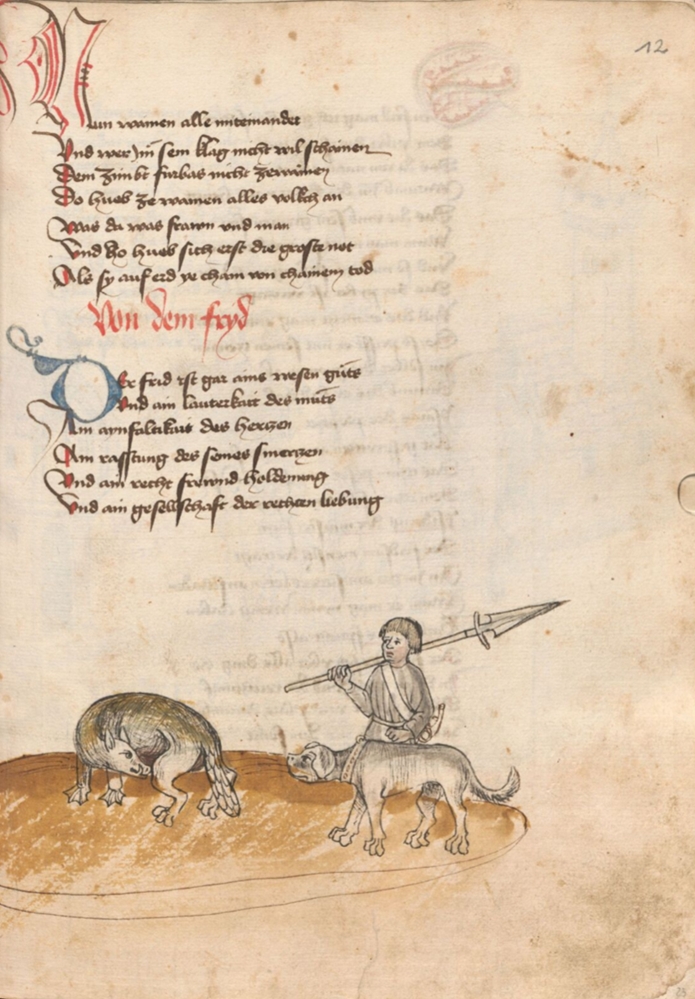 12
Nun wainen alle miteinander
Vnd wer in sein klag nicht wil schainen
Dem zimbt furbas nicht ze wainen
Do hueb ze wainen alles volkch an
Was da was frawn vnd man
Vnd do hueb sich erst die groste not
Als sy auf erd ye cham von chainem tod
Von dem fryd
Der frid ist gar ains wesen guets
Vnd ain lauterkait des muets
Ain aynfaltikait des herczen
Ain rasstung des seines smerczen
Vnd ain recht frewnd holdenung
Vnd ain gesellschaft der rechten liebung